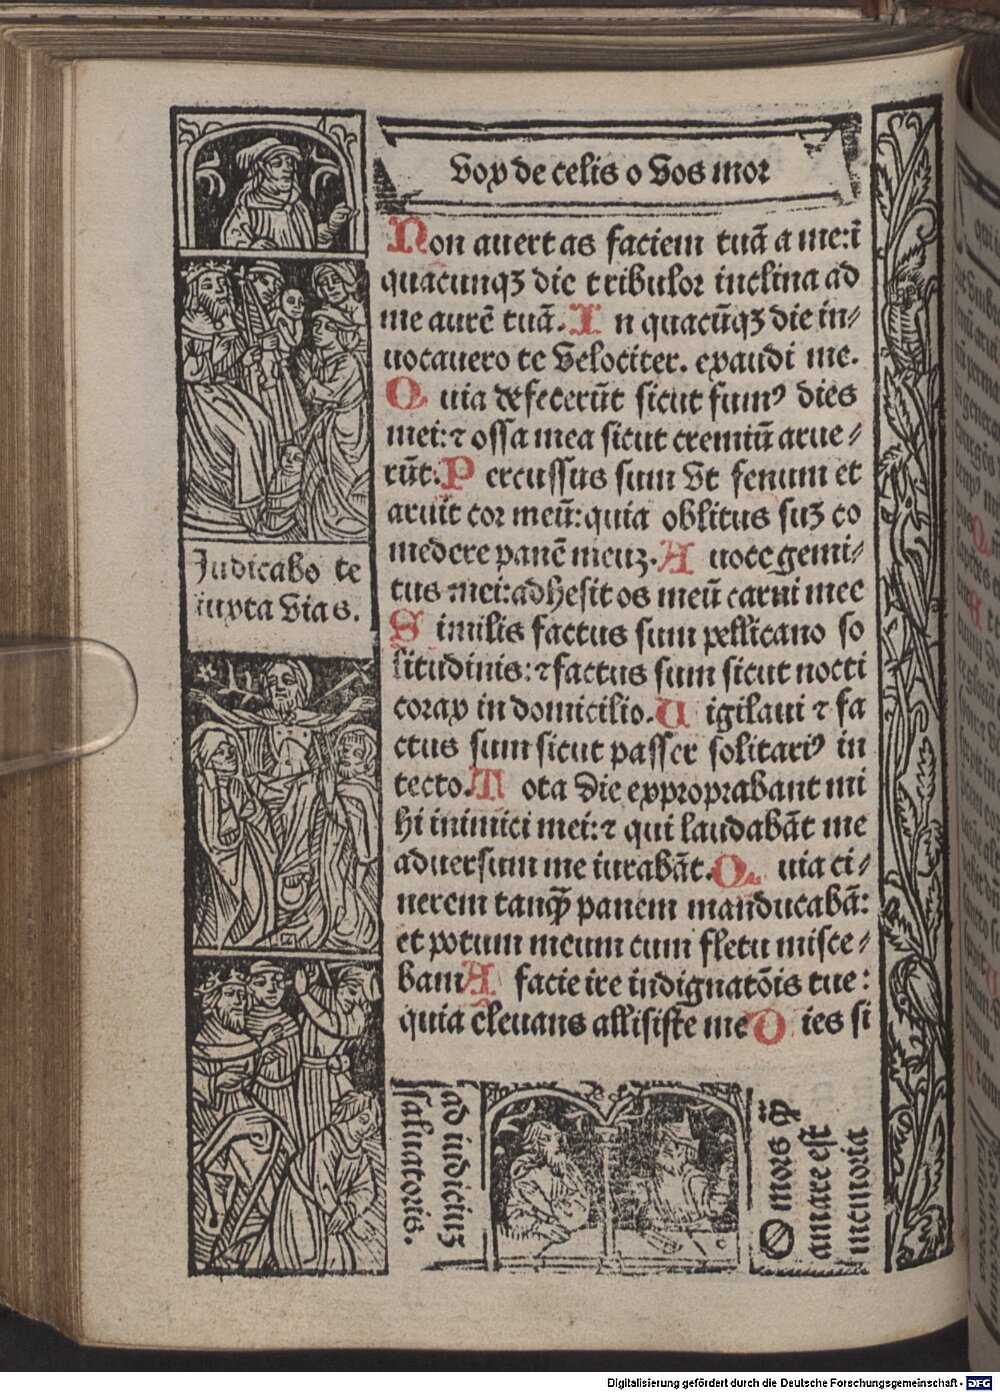 Vox de celis o Vos mor
Non auertas faciem tuã a me:ĩ
quacunqꝫ die tribulor inclina ad
me aurẽ tuã. In quacũqꝫ die in⸗
uocauero te Velociter. exaudi me.
Quia defecerũt sicut fumꝰ dies
mei:⁊ ossa mea sicut cremiũ arue⸗
rũt. Percussus sum Vt fenum et
aruit cor meũ:quia oblitus suꝫ co
medere panẽ meuꝫ. A uoce gemi⸗
tus mei:adhesit os meũ carni mee
Similis factus sum pellicano so
litudinis:⁊ factus sum sicut nocti
corax in domicilio. Uigilaui ⁊ fa
ctus sum sicut passer solitariꝰ in
tecto. Tota die exproprabant mi
hi inimici mei:⁊ qui laudabãt me
aduersum me iurabãt. Quia ci⸗
nerem tanq̃ panem manducabã:
et potum meum cum fletu misce⸗
bam A facie ire indignatõis tue:
quia eleuans allisiste me Dies si
Judicabo te
iuxta Vias.
ad iudiciuꝫ
saluatoris.
O mors q̃
amare est
memoria
Digitalisierung gefördert durch die Deutsche Forschungsgemeinschaft - DFG